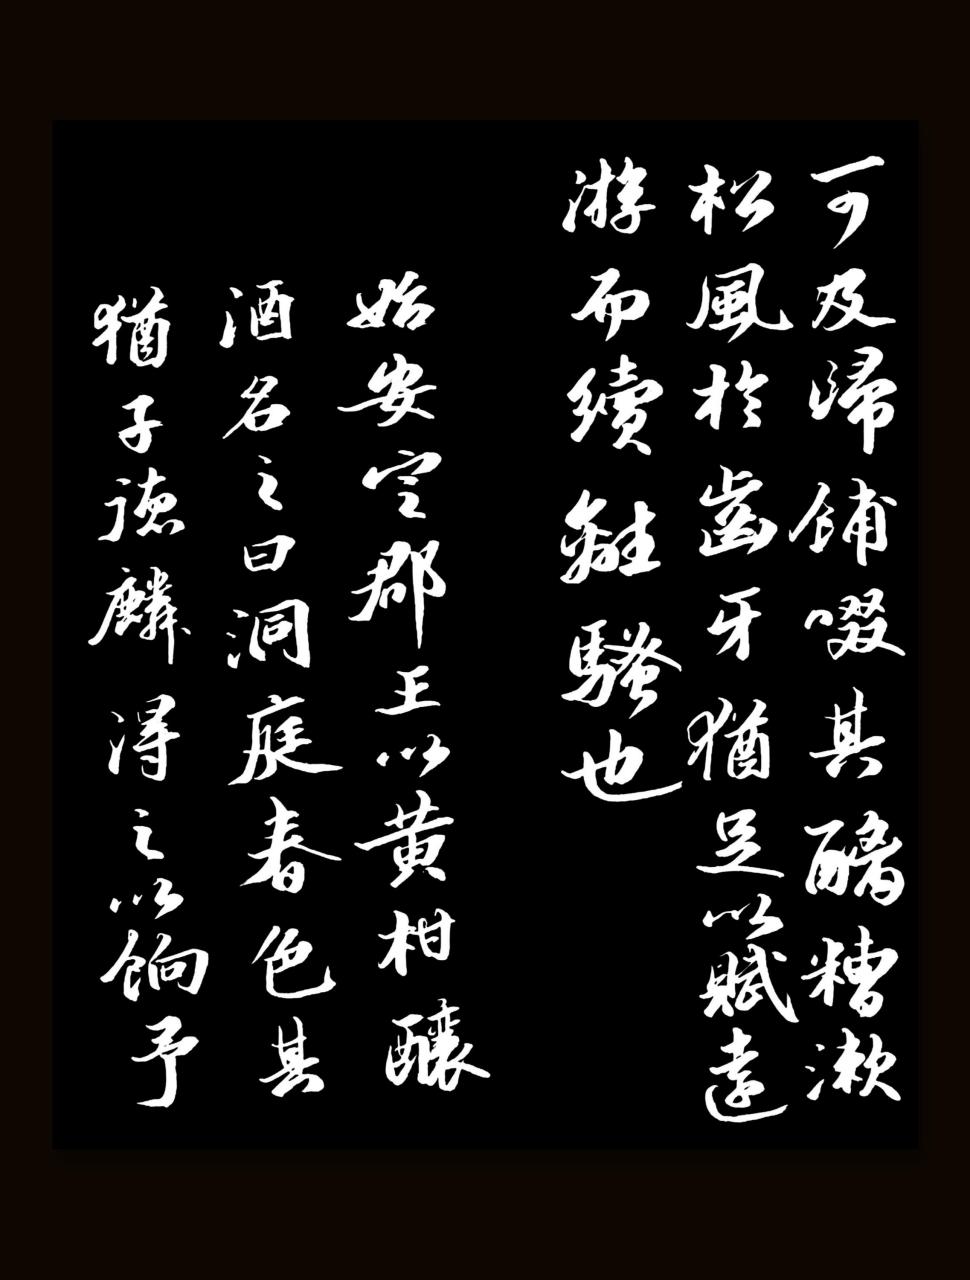 可及歸餔啜其醨糟漱
松風於齒牙猶足以賦遠
游而續離騷也
始安定郡王以黄柑釀
酒名之曰洞庭春色其
猶子德麟得之以餉予